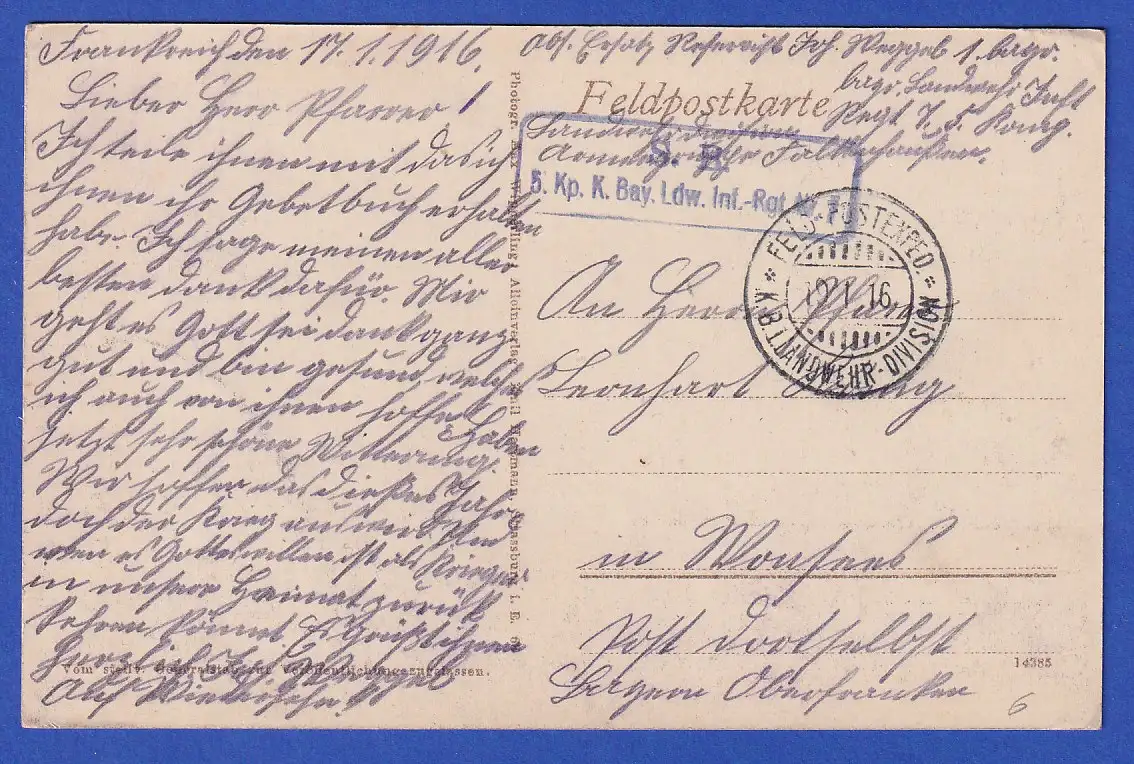 Frankreich den 17.1.1916.
Lieber Herr Pfarrer!
Ich teile ihnen mit das ich
ihnen ihr Gebetbuch erhalten
habe. Ich sage meinen aller
besten dank dafür. Mir
geht es Gott sei dank ganz
gut und bin gesund welches
ich auch von ihnen hoffe. Haben
jetzt sehr schöne Witterung.
Wir hoffen das dieses Jahr
doch der Krieg aus wird. Und
wen es Gottes willen ist als Krieger
in unsere Heimat zurück
kehren könnet. Es Grüßt ihnen
Joh.
Auf Wiedersehn!
Vom stellv. Generalstab zur Veröffentlichung zugelassen.
Photogr. Alleinverlag Emil Hartmann, Strassburg i. E.
Abs. Ersatz Reservist Joh. Weggel 1. bayr.
bayr. Landwehr Inft
Feldpostkarte
Regt. 7. 5. Komp.
Landwehrdivision
Armeegruppe Falkenhausen.
S. B.
5. Kp. K. Bay. Ldw. Inf.-Rgt. Nr. 7
FELD-POSTEXPED.
19 1 16
* K.B.1.LANDWEHR-DIVISION *
An Herrn Pfarrer
Leonhart
in Wonsees
Post dortselbst
Bayern Oberfranken
14385
6